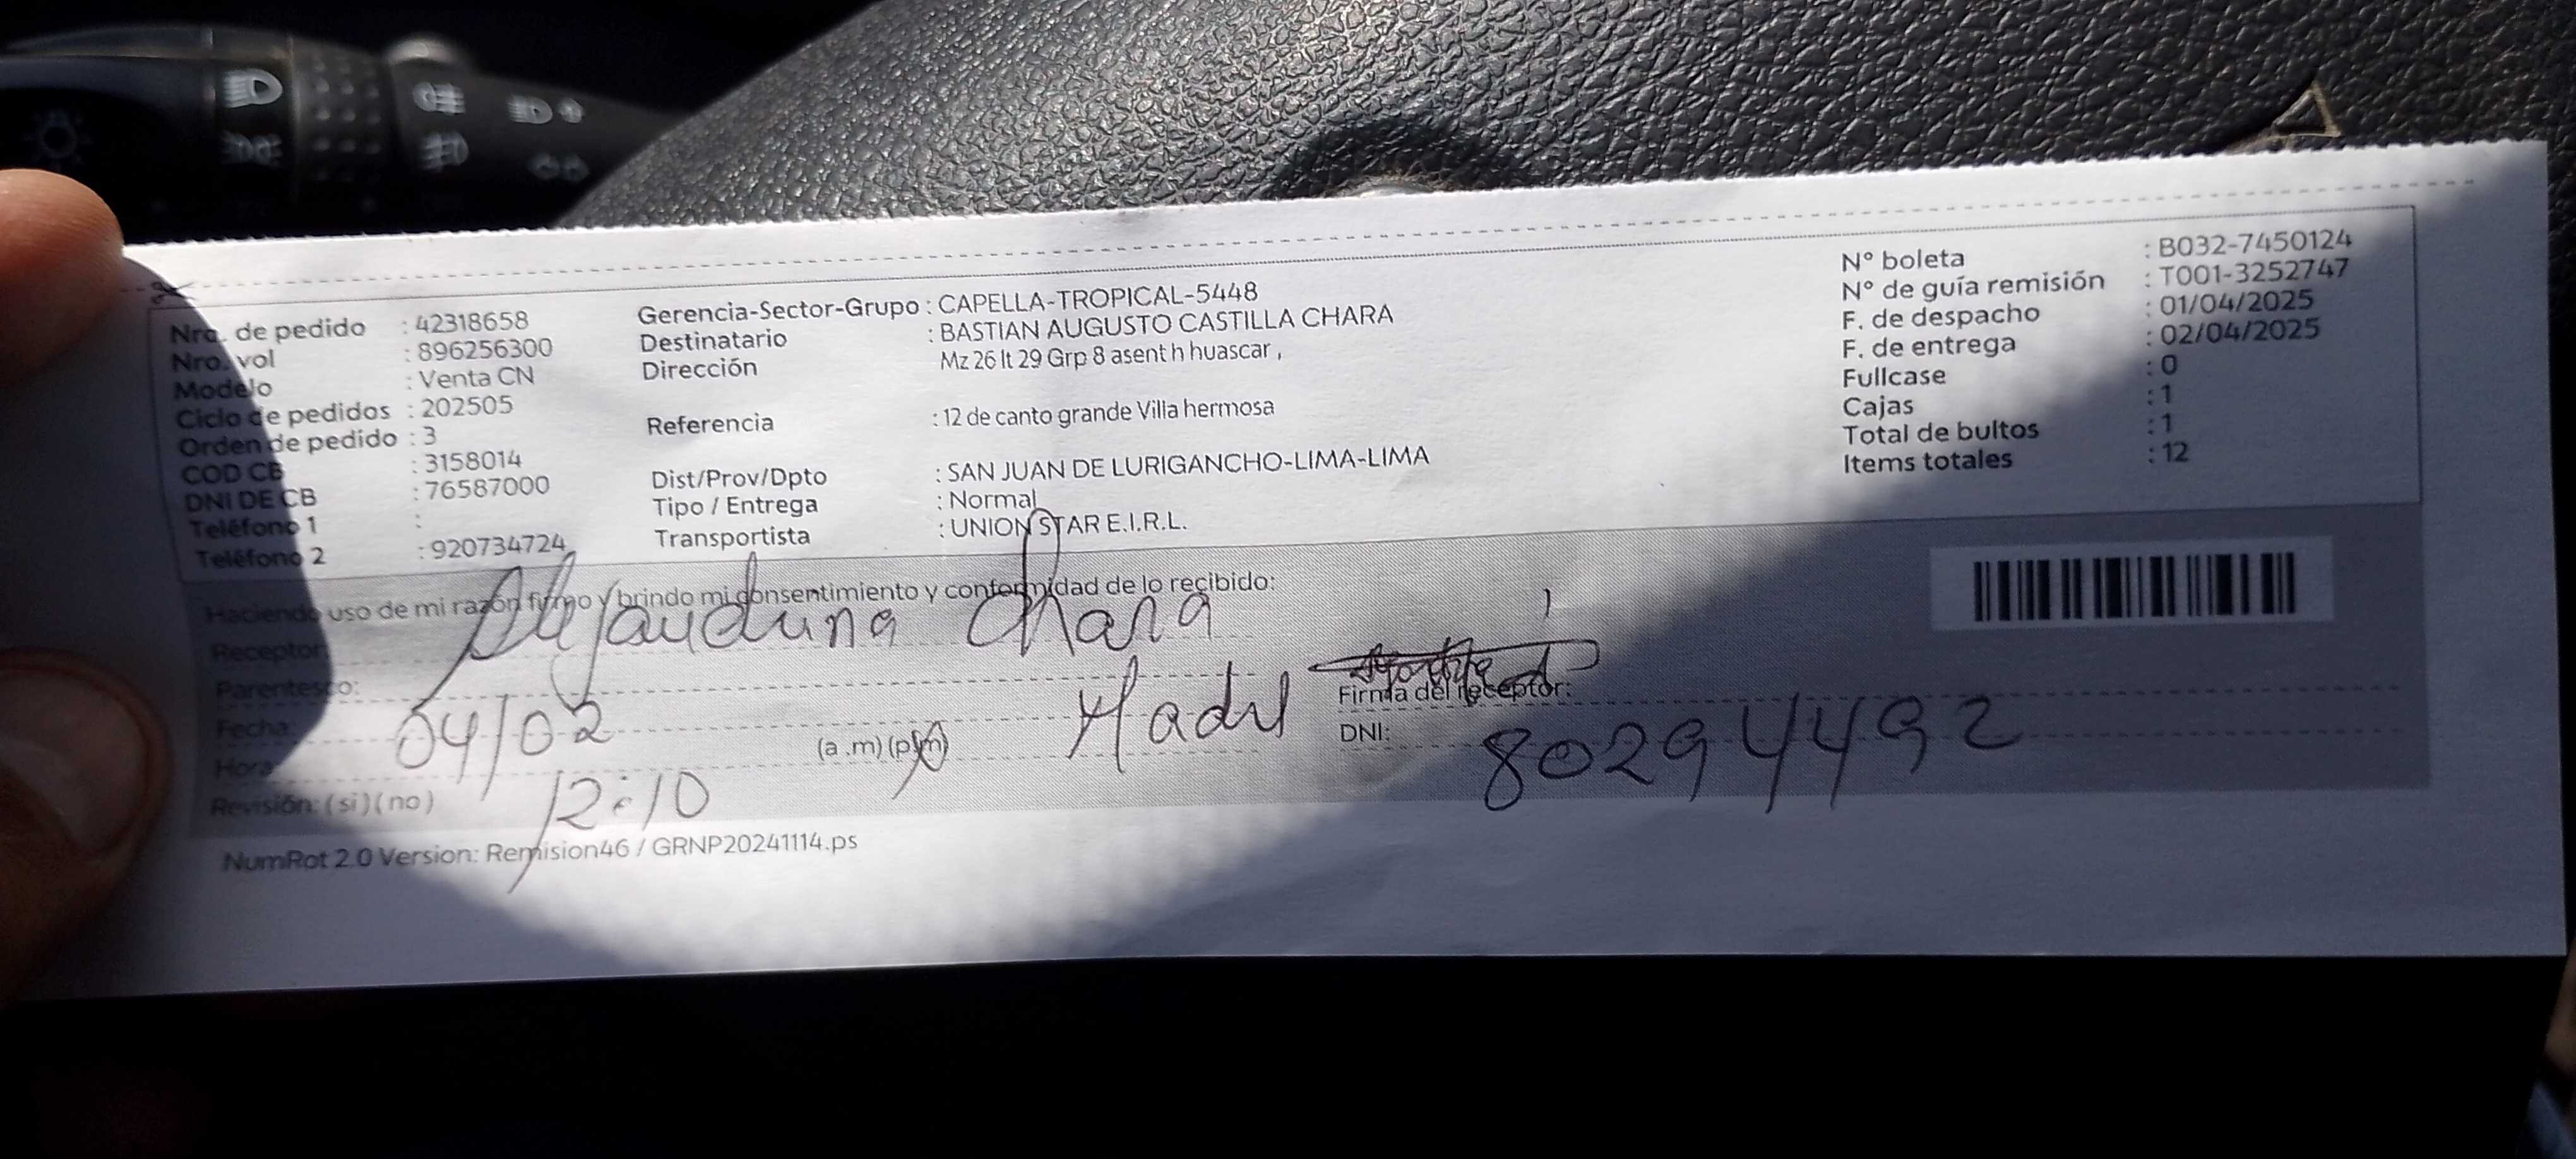 Nro. de pedido : 42318658
Nro. vol : 896256300
Modelo : Venta CN
Ciclo de pedidos : 202505
Orden de pedido : 3
COD CB : 3158014
DNI DE CB : 76587000
Teléfono 1 :
Teléfono 2 : 920734724
Gerencia-Sector-Grupo : CAPELLA-TROPICAL-5448
Destinatario : BASTIAN AUGUSTO CASTILLA CHARA
Dirección Mz 26 lt 29 Grp 8 asent h huascar ,
Referencia : 12 de canto grande Villa hermosa
Dist/Prov/Dpto : SAN JUAN DE LURIGANCHO-LIMA-LIMA
Tipo / Entrega : Normal
Transportista : UNION STAR E.I.R.L.
N° boleta : B032-7450124
N° de guía remisión : T001-3252747
F. de despacho : 01/04/2025
F. de entrega : 02/04/2025
Fullcase : 0
Cajas : 1
Total de bultos : 1
Items totales : 12
Haciendo uso de mi razón firmo y brindo mi consentimiento y conformidad de lo recibido:
Receptor: Chara
Parentesco:
Fecha: 04/02
Hora: 12:10 (a .m) (p.m)
Revisión: (si) (no)
Firma del receptor:
DNI: 80294492
NumRot 2.0 Version: Remision46 / GRNP20241114.ps